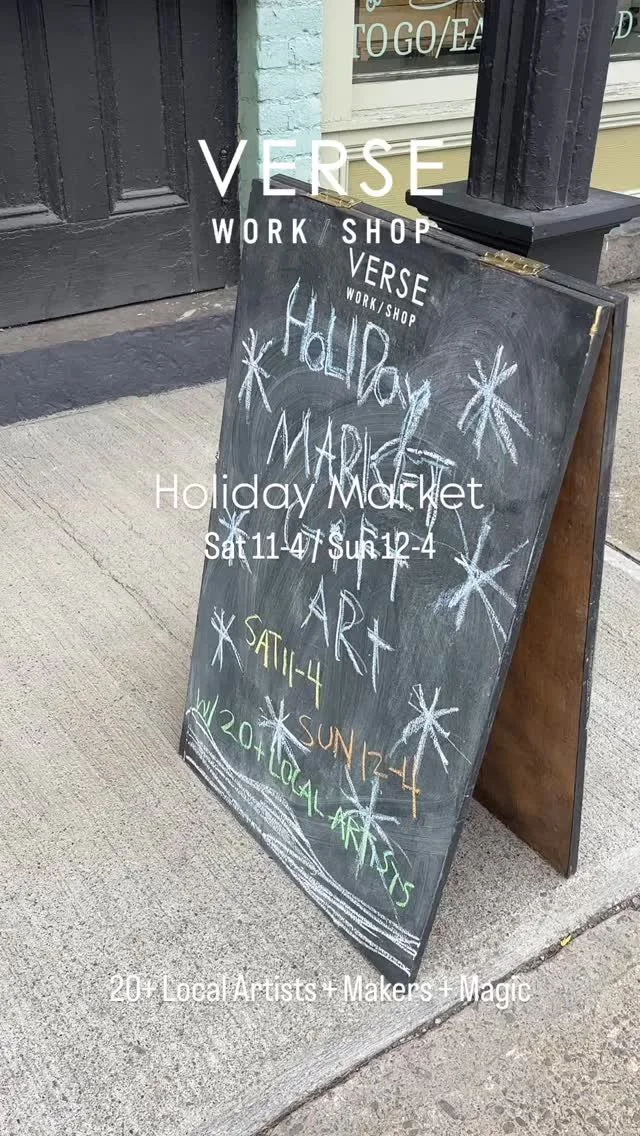 TO GO/EA
VERSE
WORK / SHOP
VERSE
WORK/SHOP
HOLIDAY
MARKET
Holiday Market
GIFT
Sat 11-4 / Sun 12-4
ART
SAT 11-4
SUN 12-4
W/ 20+ LOCAL ARTISTS
20+ Local Artists + Makers + Magic